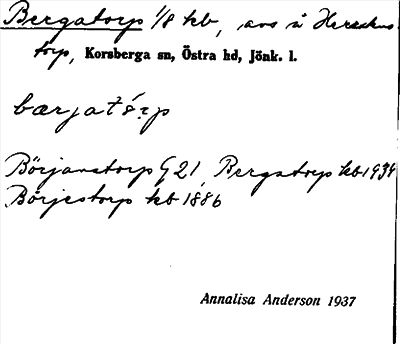 Bergatorp 1/8 kb, avs å Herrakns-
torp, Korsberga sn, Östra hd, Jönk. l.
bærjatórp
Börjanstorp G 21, Bergstorp kb 1934
Börjestorp kb 1886
Annalisa Anderson 1937